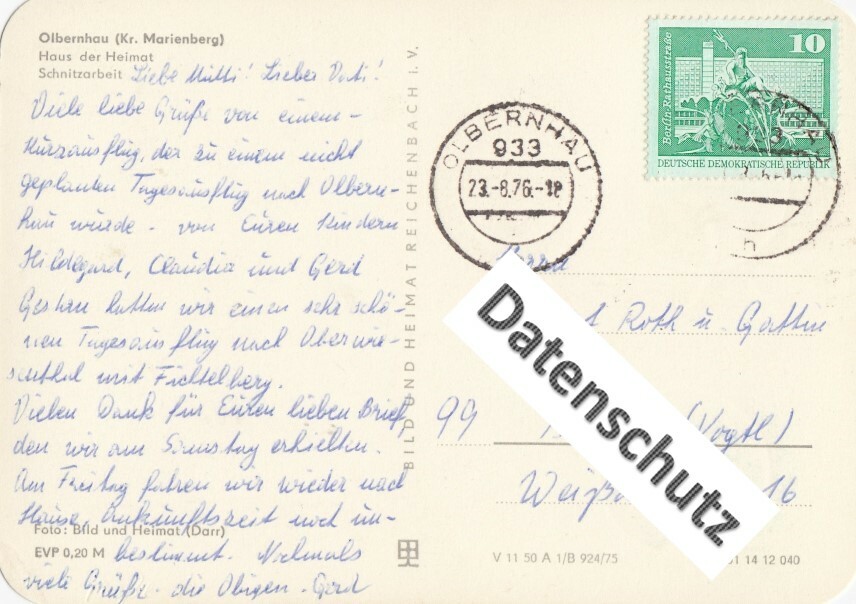 Olbernhau (Kr. Marienberg)
Haus der Heimat
Schnitzarbeit
Liebe Mutti! Lieber Vati!
Viele liebe Grüße von einem
Kurzausflug, der zu einem nicht
geplanten Tagesausflug nach Olbern-
hau wurde - von Euren Kindern
Hildegard, Claudia und Gerd
Gestern hatten wir einen sehr schö-
nen Tagesausflug nach Oberwie-
senthal mit Fichtelberg.
Vielen Dank für Euren lieben Brief,
den wir am Samstag erhielten.
Am Freitag fahren wir wieder nach
Hause, Ankunftszeit noch un-
bestimmt. Nochmals
viele Grüße - die Obigen - Gerd
Foto: Bild und Heimat (Darr)
EVP 0,20 M
BILD UND HEIMAT REICHENBACH I. V.
V 11 50 A 1/B 924/75
01 14 12 040
OLBERNHAU
933
23.-8.76.-18
10
Berlin-Rathausstraße
DEUTSCHE DEMOKRATISCHE REPUBLIK
Roth u. Gattin
99
(Vogtl)
16
Datenschutz